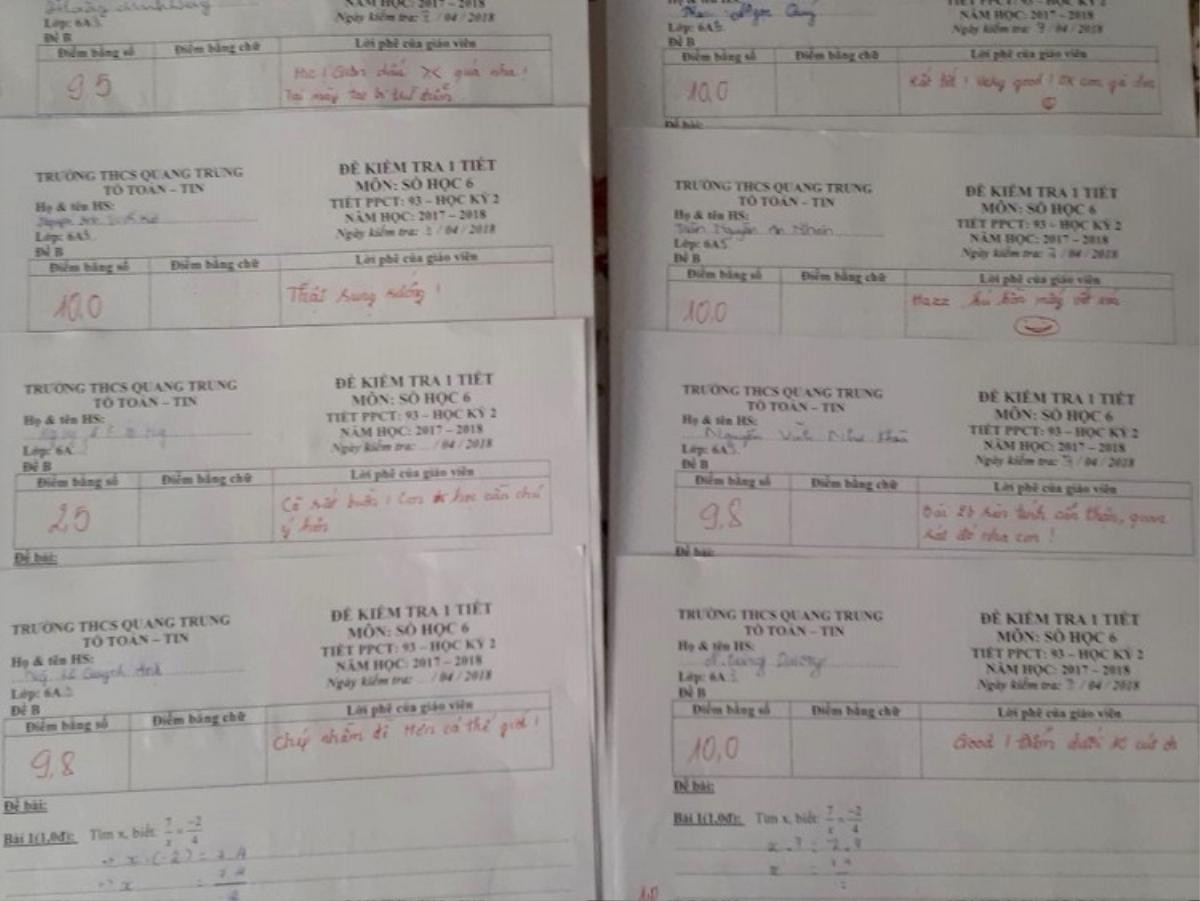 Lớp: 6A3
Đề B
Điểm bằng số Điểm bằng chữ Lời phê của giáo viên
9,5
quá nha!
NĂM HỌC: 2017 – 2018
Ngày kiểm tra: / 04 / 2018
TRƯỜNG THCS QUANG TRUNG
TỔ TOÁN – TIN
Họ & tên HS:
Lớp: 6A3
Đề B
ĐỀ KIỂM TRA 1 TIẾT
MÔN: SỐ HỌC 6
TIẾT PPCT: 93 – HỌC KỲ 2
NĂM HỌC: 2017 – 2018
Ngày kiểm tra: / 04 / 2018
Điểm bằng số Điểm bằng chữ Lời phê của giáo viên
10,0 Thật sung sướng!
TRƯỜNG THCS QUANG TRUNG
TỔ TOÁN – TIN
Họ & tên HS:
Lớp: 6A
Đề B
ĐỀ KIỂM TRA 1 TIẾT
MÔN: SỐ HỌC 6
TIẾT PPCT: 93 – HỌC KỲ 2
NĂM HỌC: 2017 – 2018
Ngày kiểm tra: / 04 / 2018
Điểm bằng số Điểm bằng chữ Lời phê của giáo viên
2,5 Cô rất buồn! Con học cần chú
ý hơn
Đề bài:
TRƯỜNG THCS QUANG TRUNG
TỔ TOÁN – TIN
Họ & tên HS:
Quỳnh Anh
Lớp: 6A
Đề B
ĐỀ KIỂM TRA 1 TIẾT
MÔN: SỐ HỌC 6
TIẾT PPCT: 93 – HỌC KỲ 2
NĂM HỌC: 2017 – 2018
Ngày kiểm tra: / 04 / 2018
Điểm bằng số Điểm bằng chữ Lời phê của giáo viên
9,8 Chép nhầm đề cả thế giới!
Đề bài:
Bài 1(1,0đ): Tìm x, biết: 7/x = -2/4
Ngọc
Lớp: 6A
Đề B
NĂM HỌC: 2017 – 2018
Ngày kiểm tra: 7 / 04 / 2018
Điểm bằng số Điểm bằng chữ Lời phê của giáo viên
10,0 Rất tốt! Very good!
Đề bài:
TRƯỜNG THCS QUANG TRUNG
TỔ TOÁN – TIN
Họ & tên HS:
Trần Nguyễn Nhân
Lớp: 6A
Đề B
ĐỀ KIỂM TRA 1 TIẾT
MÔN: SỐ HỌC 6
TIẾT PPCT: 93 – HỌC KỲ 2
NĂM HỌC: 2017 – 2018
Ngày kiểm tra: / 04 / 2018
Điểm bằng số Điểm bằng chữ Lời phê của giáo viên
10,0 Hazz
TRƯỜNG THCS QUANG TRUNG
TỔ TOÁN – TIN
Họ & tên HS:
Nguyễn Như
Lớp: 6A
Đề B
ĐỀ KIỂM TRA 1 TIẾT
MÔN: SỐ HỌC 6
TIẾT PPCT: 93 – HỌC KỲ 2
NĂM HỌC: 2017 – 2018
Ngày kiểm tra: / 04 / 2018
Điểm bằng số Điểm bằng chữ Lời phê của giáo viên
9,8 Bài 2b nên tính cẩn thận, quan
sát đề nha con!
Đề bài:
TRƯỜNG THCS QUANG TRUNG
TỔ TOÁN – TIN
Họ & tên HS:
Dương
Lớp: 6A
Đề B
ĐỀ KIỂM TRA 1 TIẾT
MÔN: SỐ HỌC 6
TIẾT PPCT: 93 – HỌC KỲ 2
NĂM HỌC: 2017 – 2018
Ngày kiểm tra: / 04 / 2018
Điểm bằng số Điểm bằng chữ Lời phê của giáo viên
10,0 Good!
Đề bài:
Bài 1(1,0đ): Tìm x, biết: 7/x = -2/4
1,0